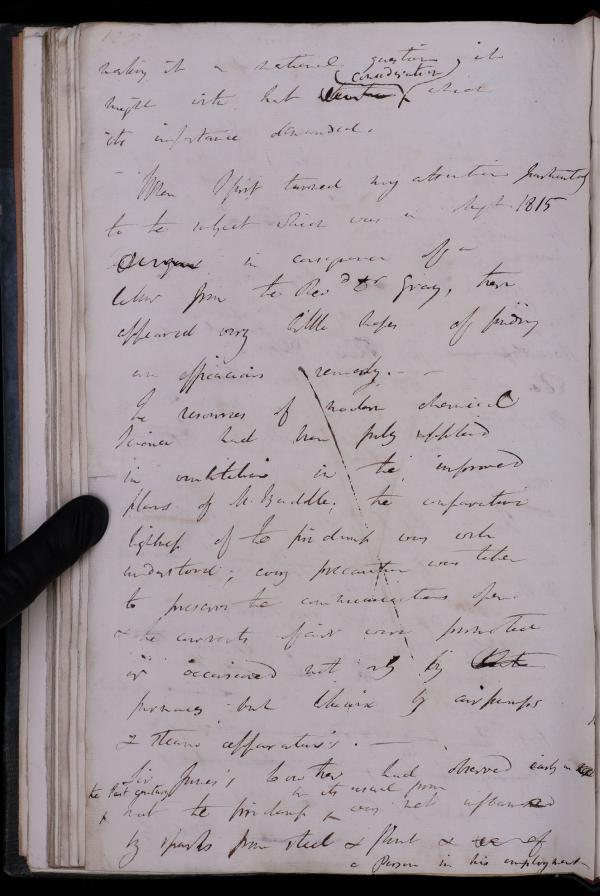 making it a national question, it
might with but consideration which
its importance demanded.
When I first turned my attention particularly
to the subject which was in Augt. 1815
in consequence of a
letter from the Revd Dr Gray, there
appeared very little hopes of finding
an efficacious remedy. -
The resources of modern chemical
Science had been fully applied
in ventilation in the improved
plans of Mr. Buddle; the comparative
lightness of the fire damp was well
understood; every precaution was taken
to preserve the communications open
& the currents of air were promoted
or occasioned not only by
furnaces but likewise by air pumps
& steam apparatus's. -
Sir James's Lowther had observed early in the
the last century in its usual form
that the firedamp was not inflamed
by sparks from steel & flint & of
a Person in his employment